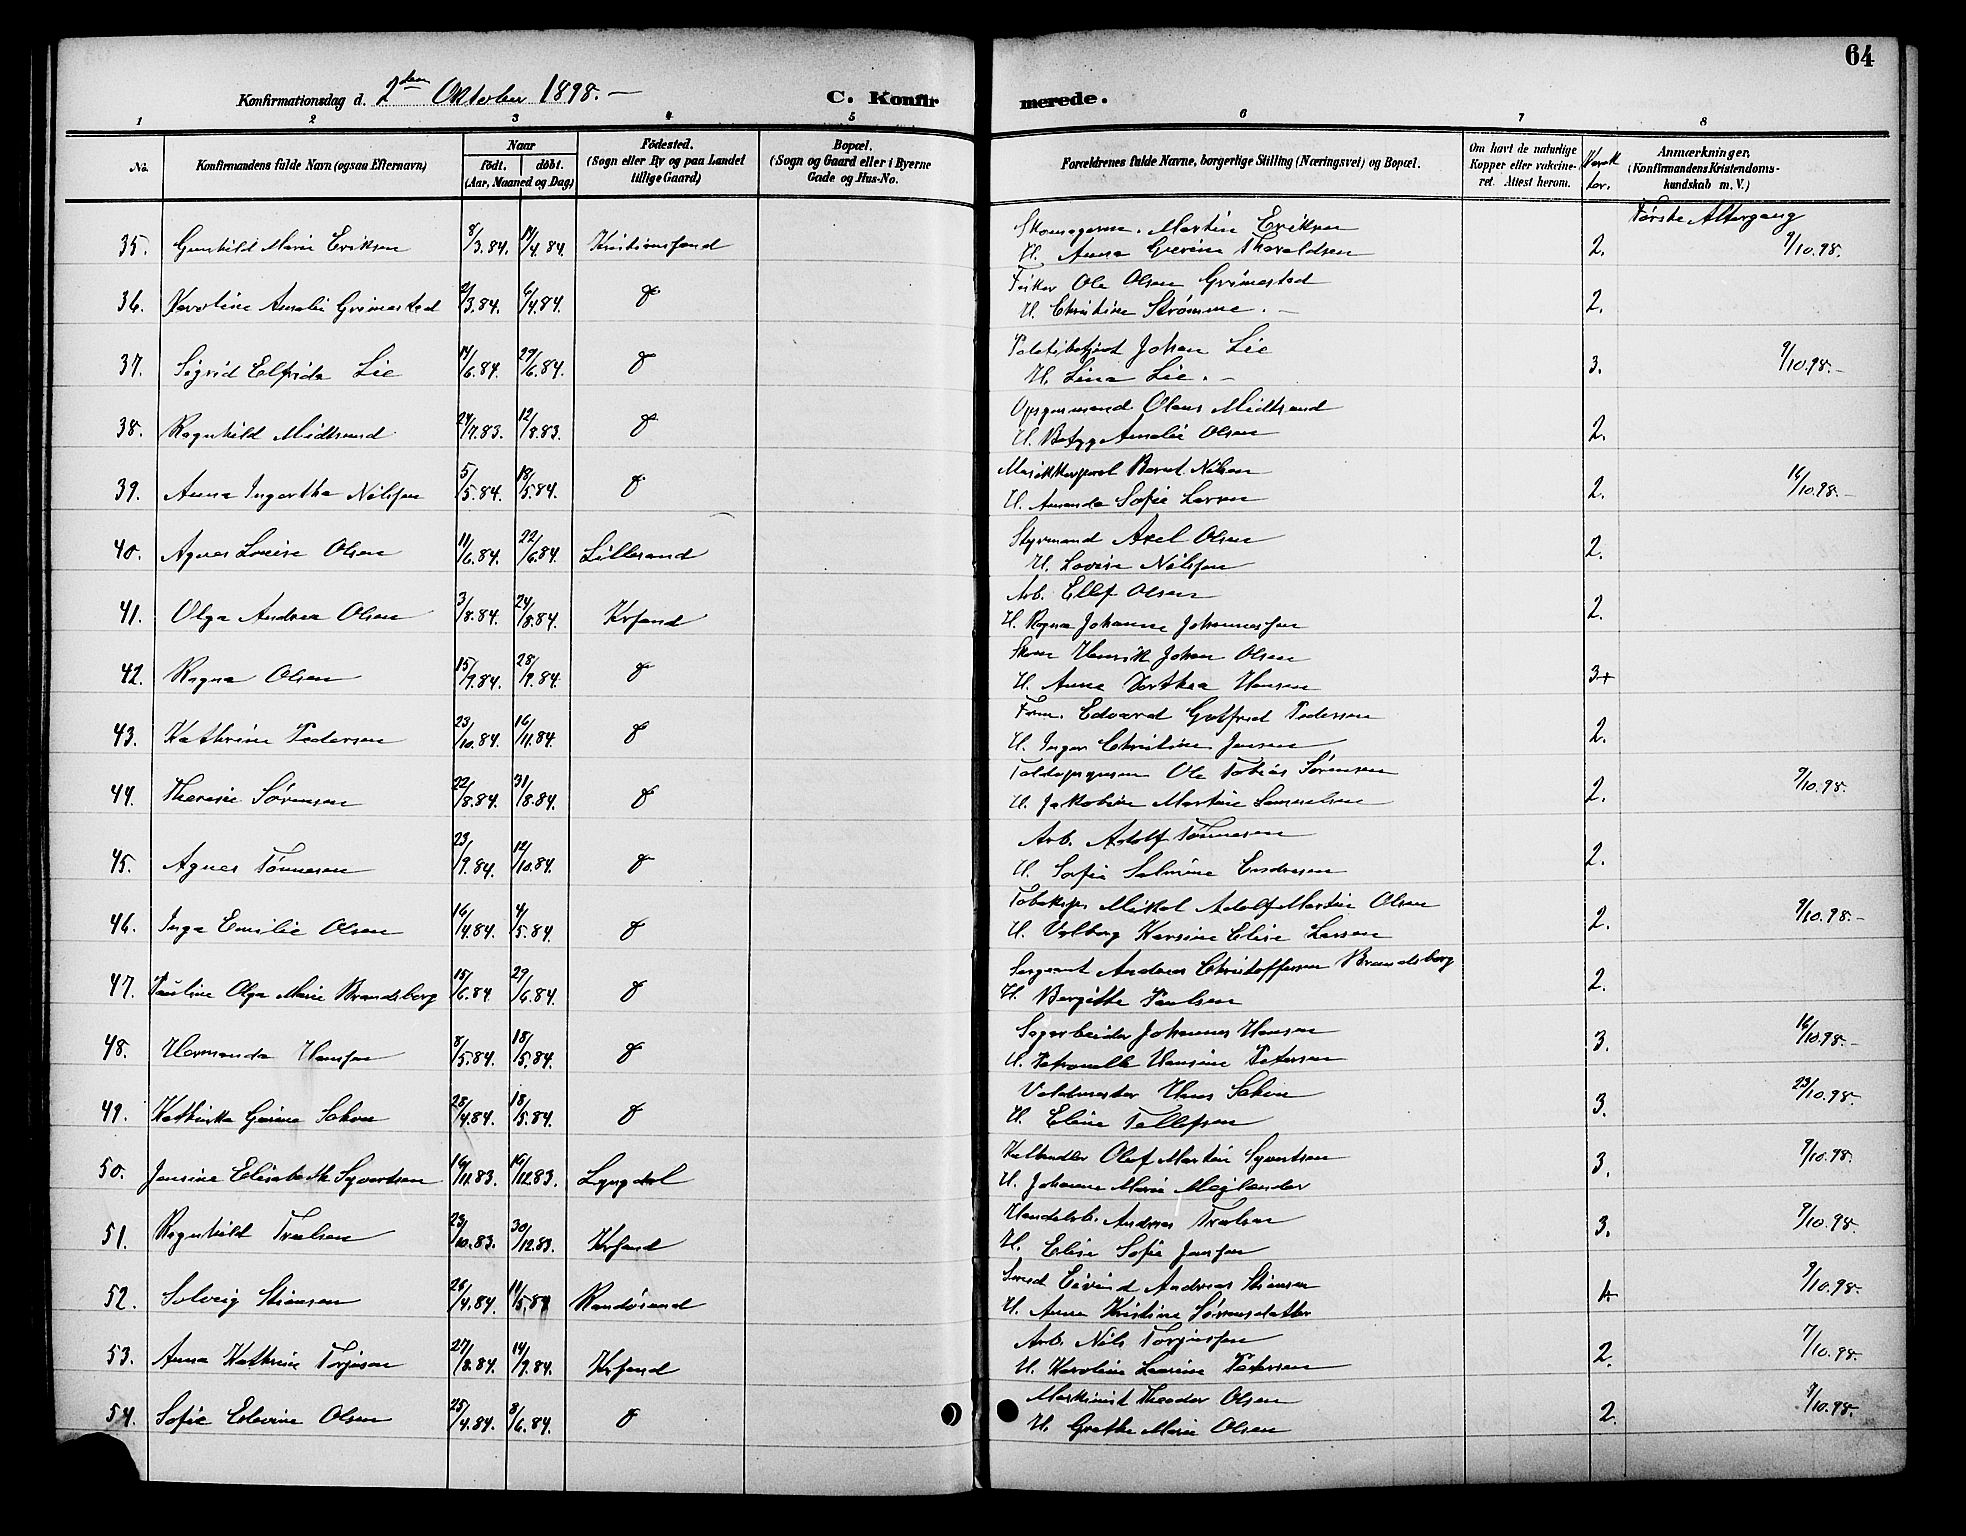 64
Konfirmationsdag d. 2den Oktober 1898.— C. Konfirmerede.
1 2 3 4 5 6 7 8
No. Konfirmandens fulde Navn (ogsaa Efternavn) Naar født. døbt. (Aar, Maaned og Dag) Fødested. (Sogn eller By og paa Landet tillige Gaard) Bopæl. (Sogn og Gaard eller i Byerne Gade og Hus-No. Forældrenes fulde Navne, borgerlige Stilling (Næringsvei) og Bopæl. Om havt de naturlige Kopper eller vakcineret. Attest herom. Karakter. Anmærkninger, (Konfirmandens Kristendomskundskab m. V.)
Første Altergang
35. Gunhild Marie Eriksen 8/3.84. 14/4.84. Kristianssand Skomagerm. Martin Eriksen 2. 9/10.98.
H. Anna Gverine Tharaldsen
36. Karoline Amalie Grimestad 2/3.84. 6/4.84. Fisker Ole Olsen Grimestad 2.
H. Christine Strømme. —
37. Sigrid Elfrida Lie 14/6.84. 29/6.84. Politibetjent Johan Lie 3. 9/10.98.—
H. Lina Lie. —
38. Ragnhild Midtsund 24/7.83. 12/8.83. Opsynsmand Olaus Midtsund 2.
H. Amalie Olsen
39. Anna Ingertha Nilssen 5/5.84. 18/5.84. Musikkorporal Bernt Nilsen 2. 16/10.98.—
H. Amanda Sofie Larsen
40. Agnes Lovise Olsen 11/6.84. 22/6.84. Lillesand Styrmand Axel Olsen 2.
H. Lovise Nilssen
41. Olga Andrea Olsen 3/8.84. 24/8.84. Krsand Arb. Ellef Olsen 2.
H. Ragna Johanne Johannessen
42. Ragna Olsen 15/9.84. 28/9.84. Henrik Johan Olsen 3+
H. Anna Dorthea Hansen
43. Kathrine Pedersen 23/10.84. 16/11.84. Edvard Gotfred Pedersen 2.
H. Inger Christine Jensen
44. Theresie Sørensen 22/8.84. 31/8.84. Ole Tobias Sørensen 2. 9/10.98.
H. Jakobine Martine Samuelsen
45. Agnes Tønnesen 23/9.84. 12/10.84. Arb. Adolf Tønnesen 2.
H. Sofie Salmine Endresen
46. Inga Emilie Olsen 16/4.84. 4/5.84. Mikal Adolf Martin Olsen 2. 9/10.98.—
H. Valborg Karsine Elise Larsen
47. Pauline Olga Marie Brandsborg 15/6.84 29/6.84. Sergeant Andreas Christoffersen Brandsborg 2.
H. Bergitte Paulsen
48. Hermanda Hansen 8/5.84. 18/5.84. Sagarbeider Johannes Hansen 3. 16/10.98.—
H. Petronelle Hansine Petersen
49. Kathinka Gurine Salven 28/4.84. 18/5.84. Hans Salven 3. 23/10.98.
H. Eline Tellefsen
50. Jensine Elisabeth Syvertsen 16/11.83. 16/12.83. Lyngdal Olaf Martin Syvertsen 3. 9/10.98.
H. Johanne Marie Meglænder
51. Ragnhild Trælsen 23/10.83. 30/12.83. Krsand Andreas Trælsen 3. 9/10.98.
H. Elise Sofie Jansen
52. Solveig Stiansen 26/4.84. 11/5.84 Randøsund Smed Eivind Andreas Stiansen 9/10.98.
H. Anna Kristine Sørensdatter
53. Anna Kathrine Torjusen 27/8.84. 14/9.84. Krsand Arb. Nils Torjussen 2. 9/10.98.
H. Karoline Laurine Petersen
54. Sofie Elevine Olsen 25/4.84. 8/6.84. Maskinist Theodor Olsen 2. 9/10.98.
H. Grethe Marie Olsen